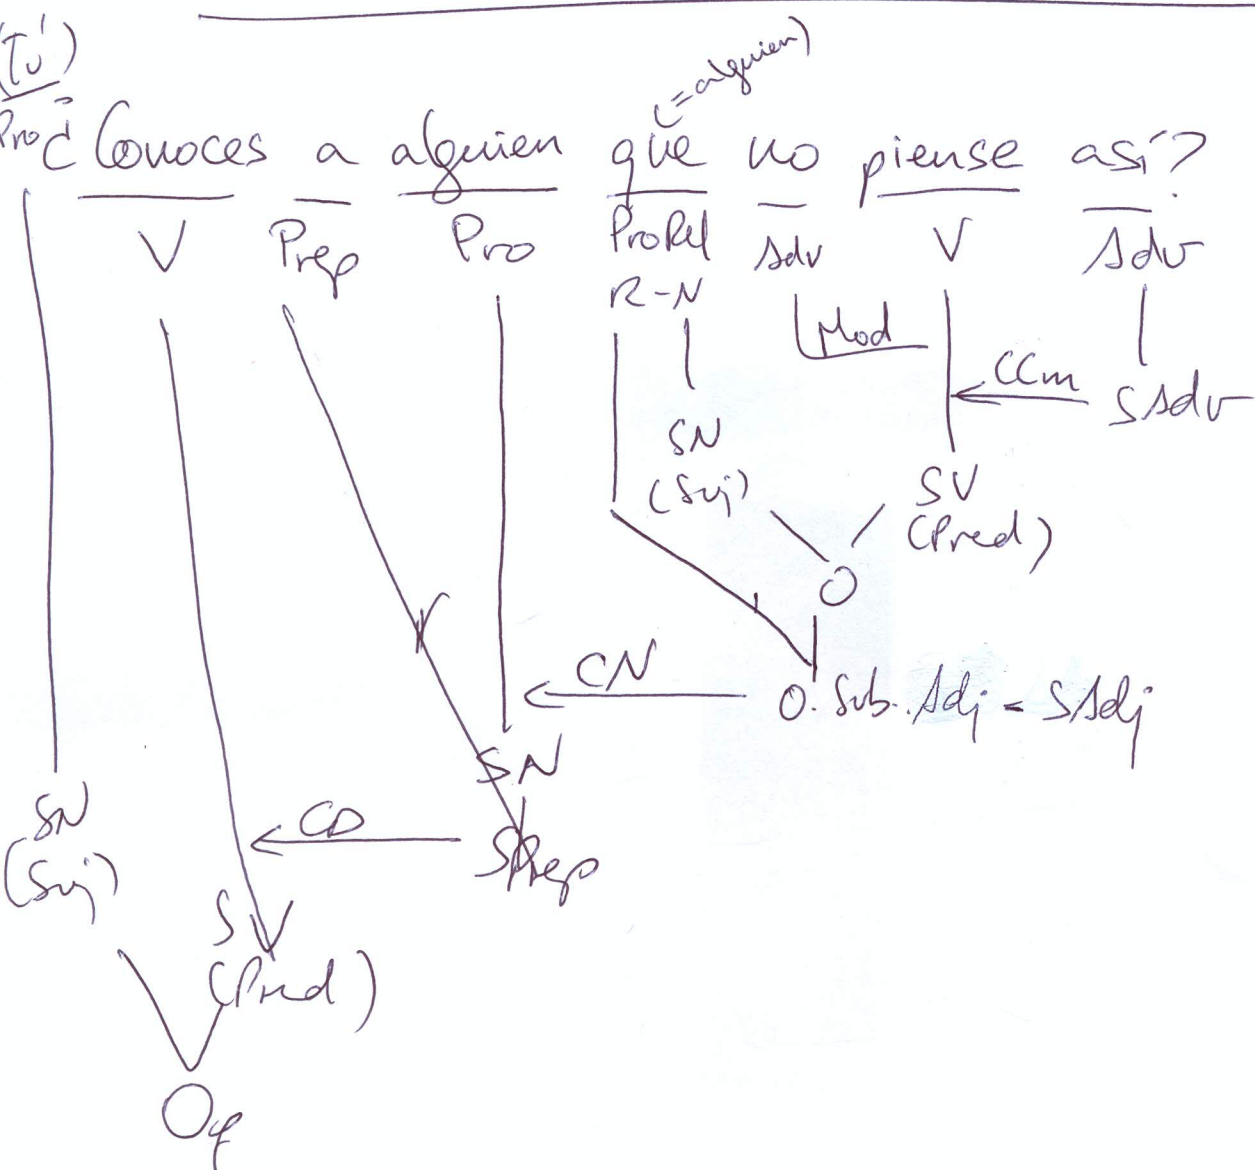 (Tú)
(=alguien)
¿Conoces a alguien que no piense así?
Pro V Prep Pro ProRel Adv V Adv
R-N
Mod
CCm
SAdv
SN
(Suj)
SV
(Pred)
O
CN
O. Sub. Adj = SAdj
SN
SN
(Suj)
CD
SPrep
SV
(Pred)